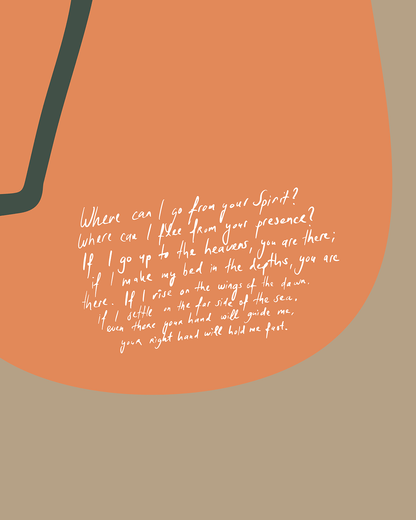 Where can I go from your Spirit?
Where can I flee from your presence?
If I go up to the heavens, you are there;
if I make my bed in the depths, you are
there. If I rise on the wings of the dawn,
if I settle on the far side of the sea,
even there your hand will guide me,
your right hand will hold me fast.